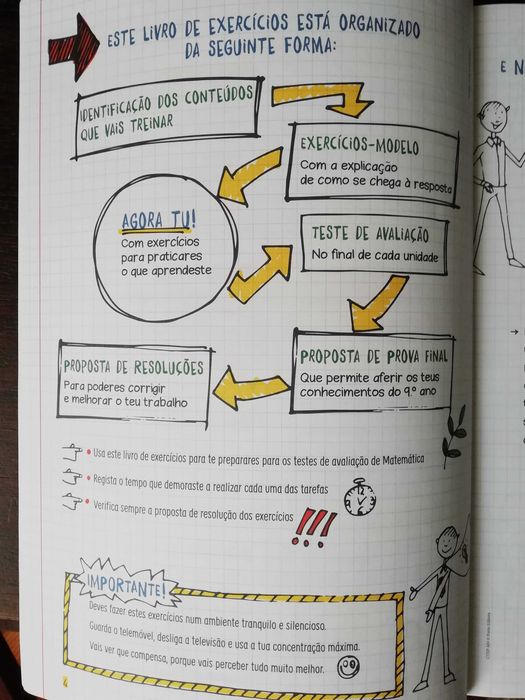 ESTE LIVRO DE EXERCÍCIOS ESTÁ ORGANIZADO
DA SEGUINTE FORMA:
IDENTIFICAÇÃO DOS CONTEÚDOS
QUE VAIS TREINAR
EXERCÍCIOS-MODELO
Com a explicação
de como se chega à resposta
AGORA TU!
Com exercícios
para praticares
o que aprendeste
TESTE DE AVALIAÇÃO
No final de cada unidade
PROPOSTA DE PROVA FINAL
Que permite aferir os teus
conhecimentos do 9.º ano
PROPOSTA DE RESOLUÇÕES
Para poderes corrigir
e melhorar o teu trabalho
• Usa este livro de exercícios para te preparares para os testes de avaliação de Matemática
• Regista o tempo que demoraste a realizar cada uma das tarefas
• Verifica sempre a proposta de resolução dos exercícios !!!
IMPORTANTE!
Deves fazer estes exercícios num ambiente tranquilo e silencioso.
Guarda o telemóvel, desliga a televisão e usa a tua concentração máxima.
Vais ver que compensa, porque vais perceber tudo muito melhor.
E N